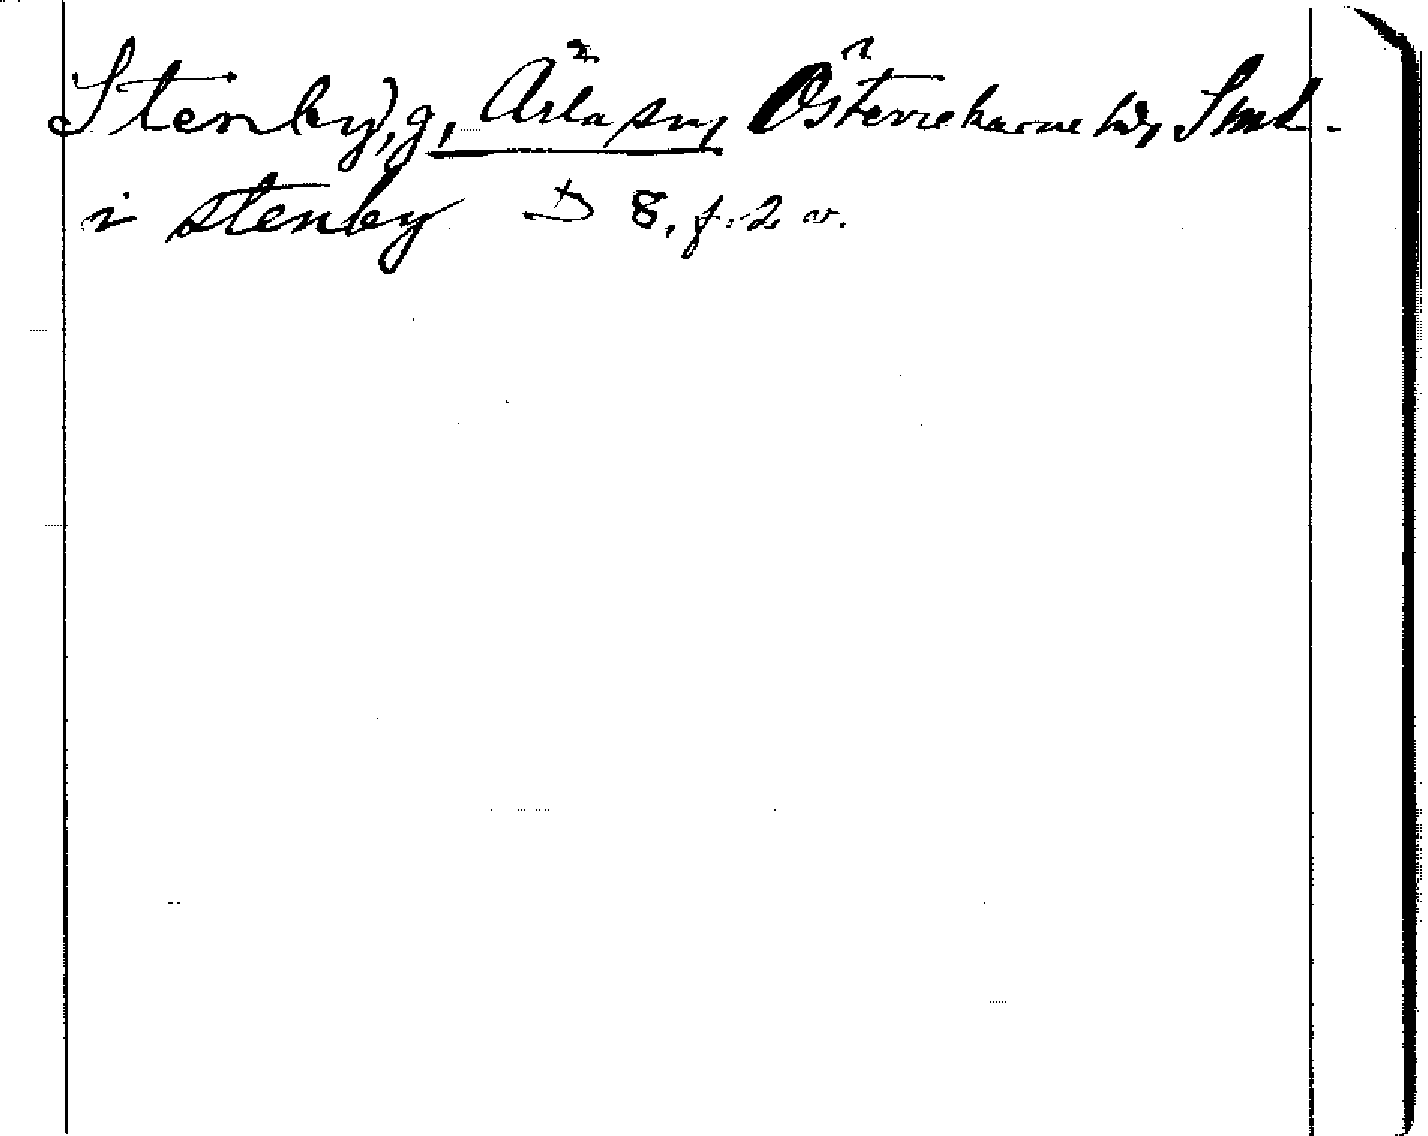 Stenby, g, Ärla sn, Österrekarne hd, Sml.
i stenby D 8, f. 2 v.